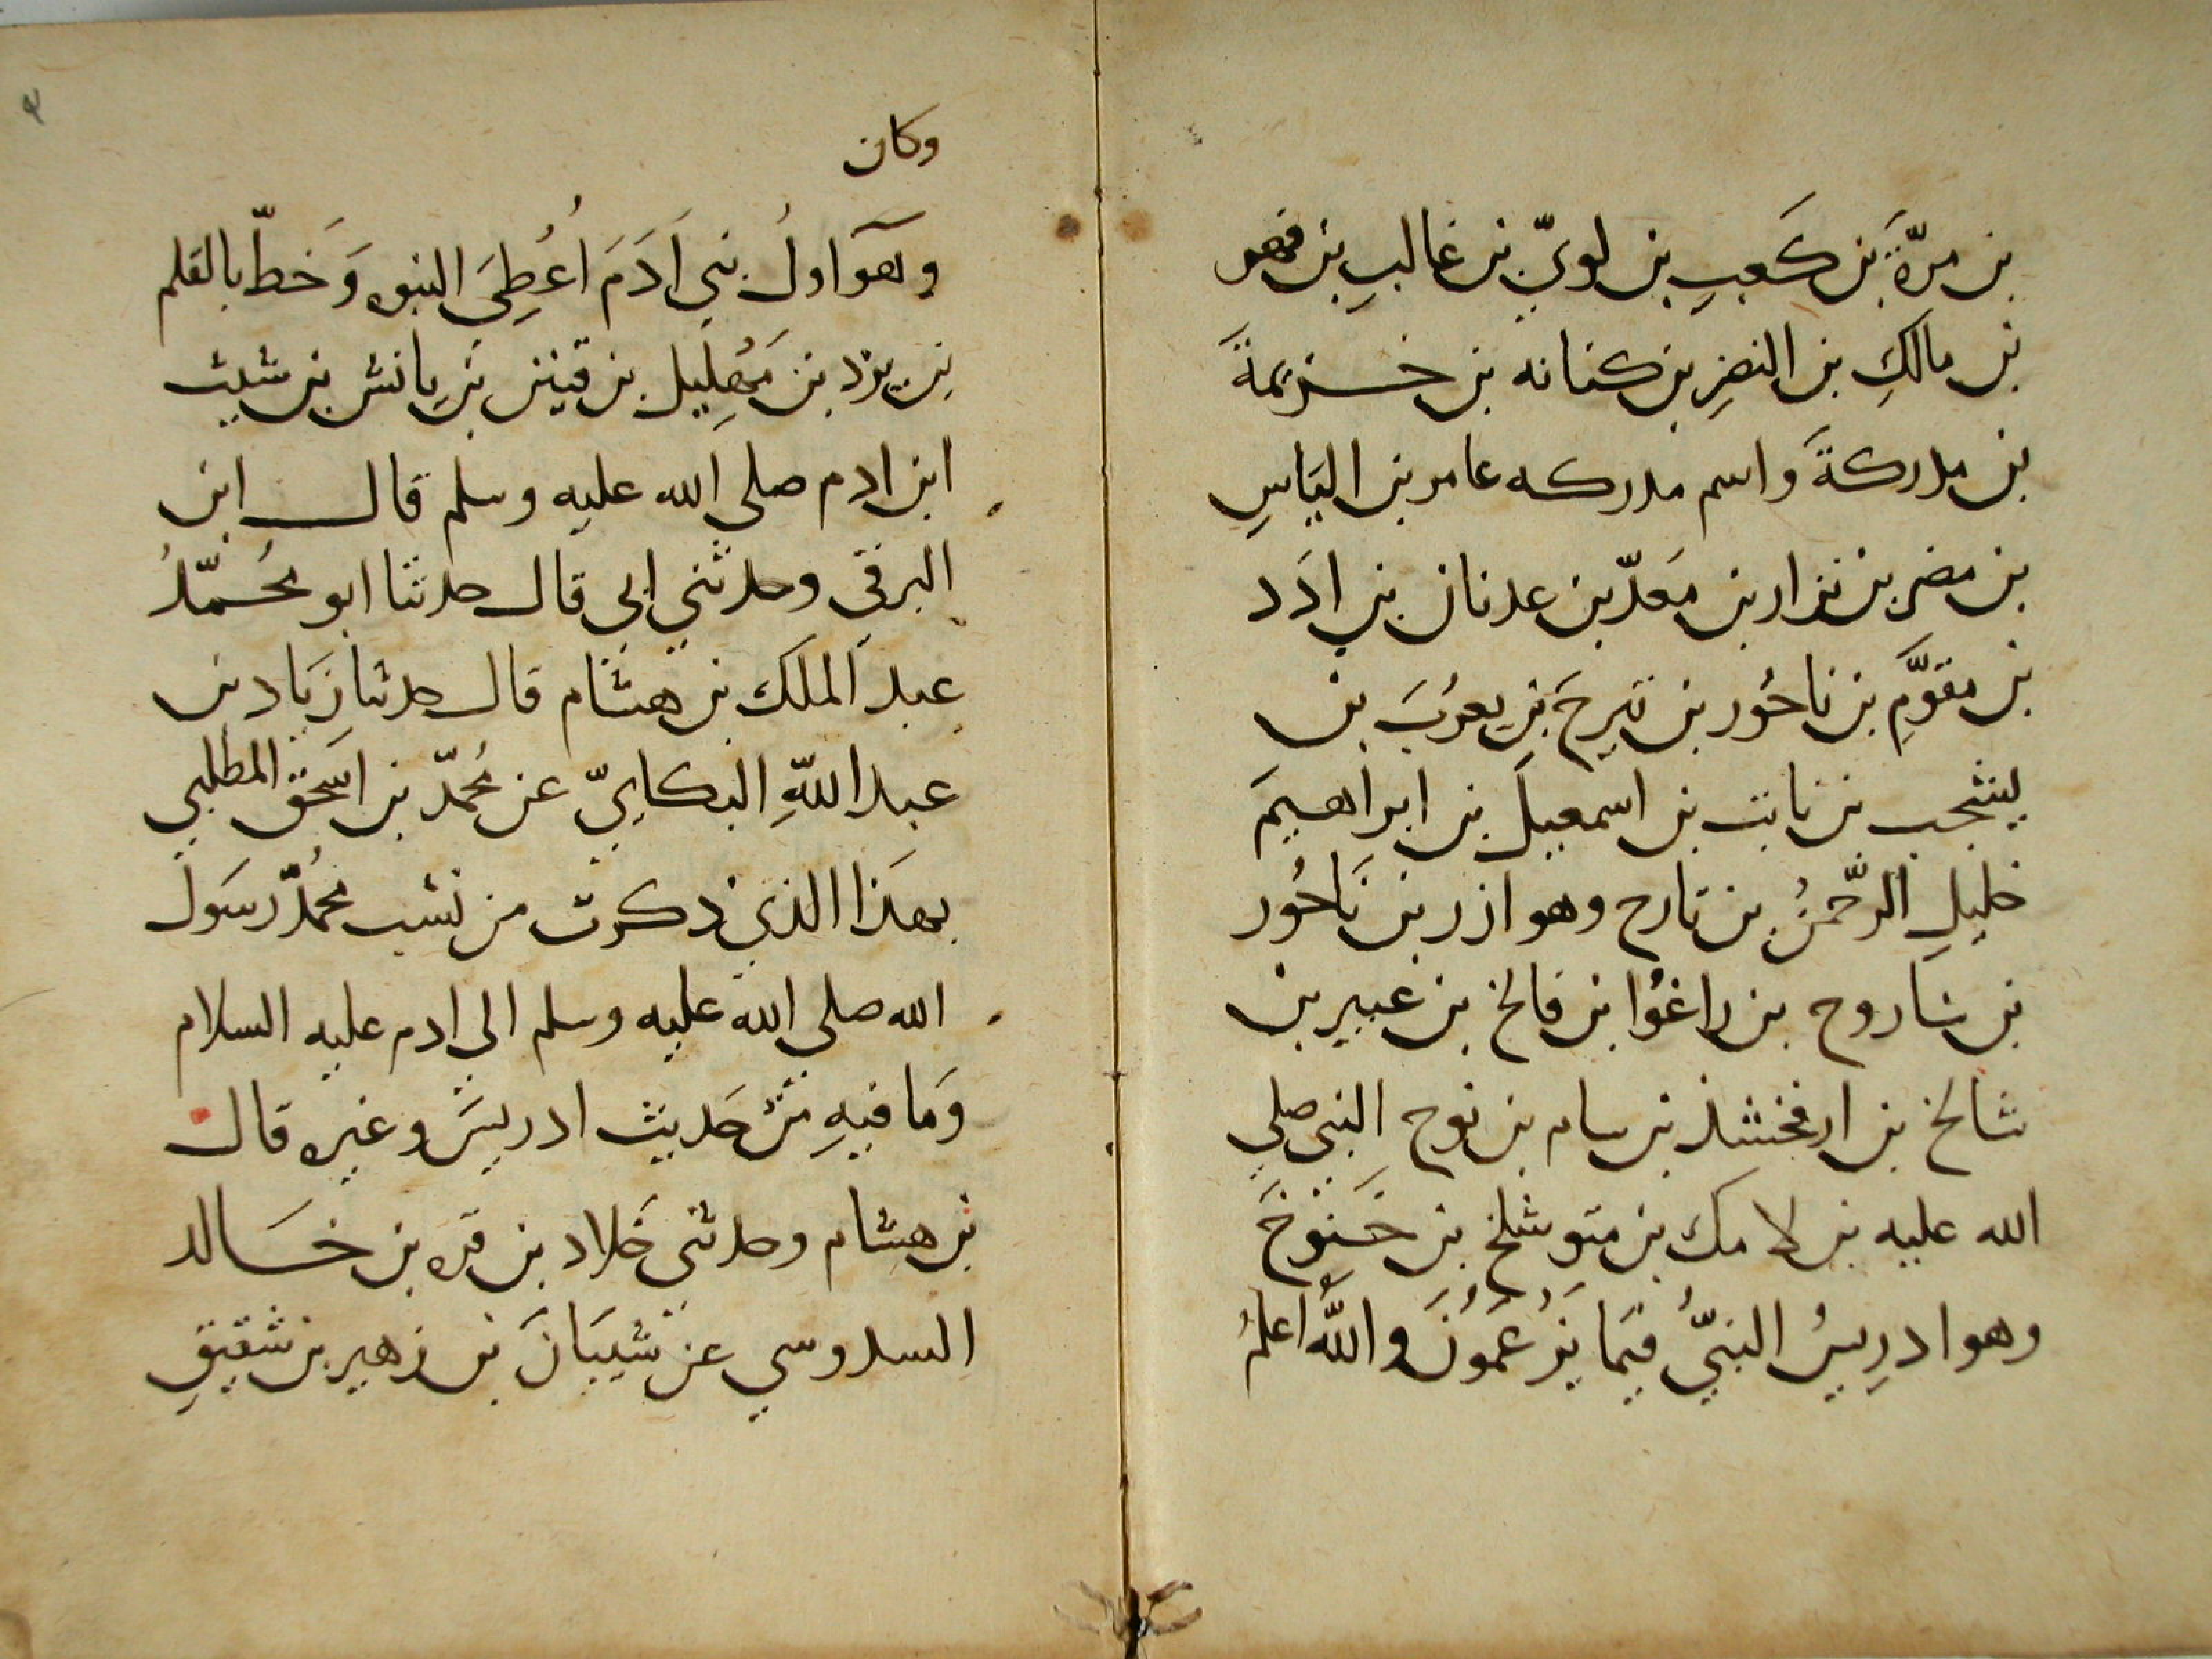 بن مرّةَ بن كَعبِ بن لويّ بن غالبِ بن فهر
بن مالكِ بن النضرِ بن كنانه بن خزيمةَ
بن مدركةَ واسم مدركه عامر بن اليَاسِ
بن مضر بن نزار بن مَعدّ بن عدنان بن ادَد
بن مقوَّمِ بن ناحُور بن تَيرحَ بن يعرُبَ بن
يشجب بن نابت بن اسمعيلَ بن ابراهيمَ
خليلِ الرَّحمنُ بن تارح وهو ازر بن نَاحُور
بن ساروح بن راغوُا بن فالخ بن عيبر بن
شالخ بن ارفخشذ بن سام بن نوح النبي صلي
الله عليه بن لامك بن متوشلخ بن خَنوُخَ
وهو ادرِيسُ النبيُّ فيَما يَزعُمُونَ واللَّهُ اعلمُ
وكان
وهو اولُ بني اَدَمَ اُعُطِيَ النبوه وَخَطّ بالقلم
بنِ يرد بن مَهلِيل بن قينن بن يانش بن شيث
ابن ادم صلي الله عليه وسلم قال ابن
البرقي وحدثني ابي قال حدثنا ابو محُمّدُ
عبد الملك بن هشام قال حدثنا زيَاد بن
عبد اللّهِ البكايِّ عن محُمّد بن اسَحق المطلبي
بهذَا الذي ذكرت من نسَب محُمدّ رسَول
الله صلي الله عليه وسلم الي ادم عليه السلام
وَمَا فيهِ من حَديث ادريسَ وغيره قال
بن هشام وحدثني خَلاد بن قره بن خَالد
السدوسي عن شيبَانَ بن زهير بن شقيقِ